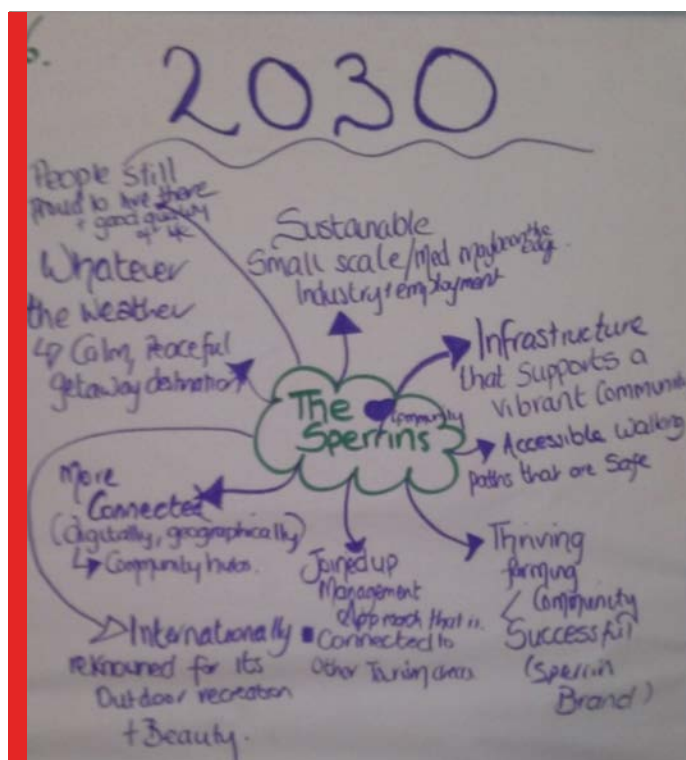 6.
2030
People still
Proud to live there
+ good quality
of life
Whatever
the weather
↳ Calm, Peaceful
getaway destination
Sustanable
Small scale/Med maybe on the Edge.
Industry + employment
Infrastructure
that supports a
vibrant Communi
Accessible Walking
paths that are Safe
The
Sperrins
Community
More
Connected
(digitally, geographically)
↳ Community hubs.
Joined up
Management
Approach that is
Connected to
Other Tourism areas
Thriving
farming
Community
Successful
(Sperrin
Brand)
Internationally
reknouned for its
Outdoor recreation
+ Beauty.